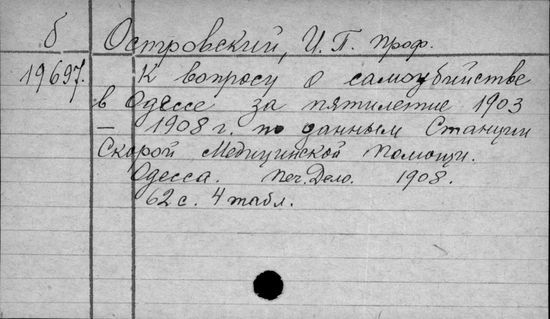 б Островский, И. П. проф.
19697. К вопросу о самоубийстве
в Одессе за пятилетие 1903
— 1908 г. по данным Станции
Скорой Медицинской Помощи.
Одесса. Печ. Дело. 1908.
62 с. 4 табл.